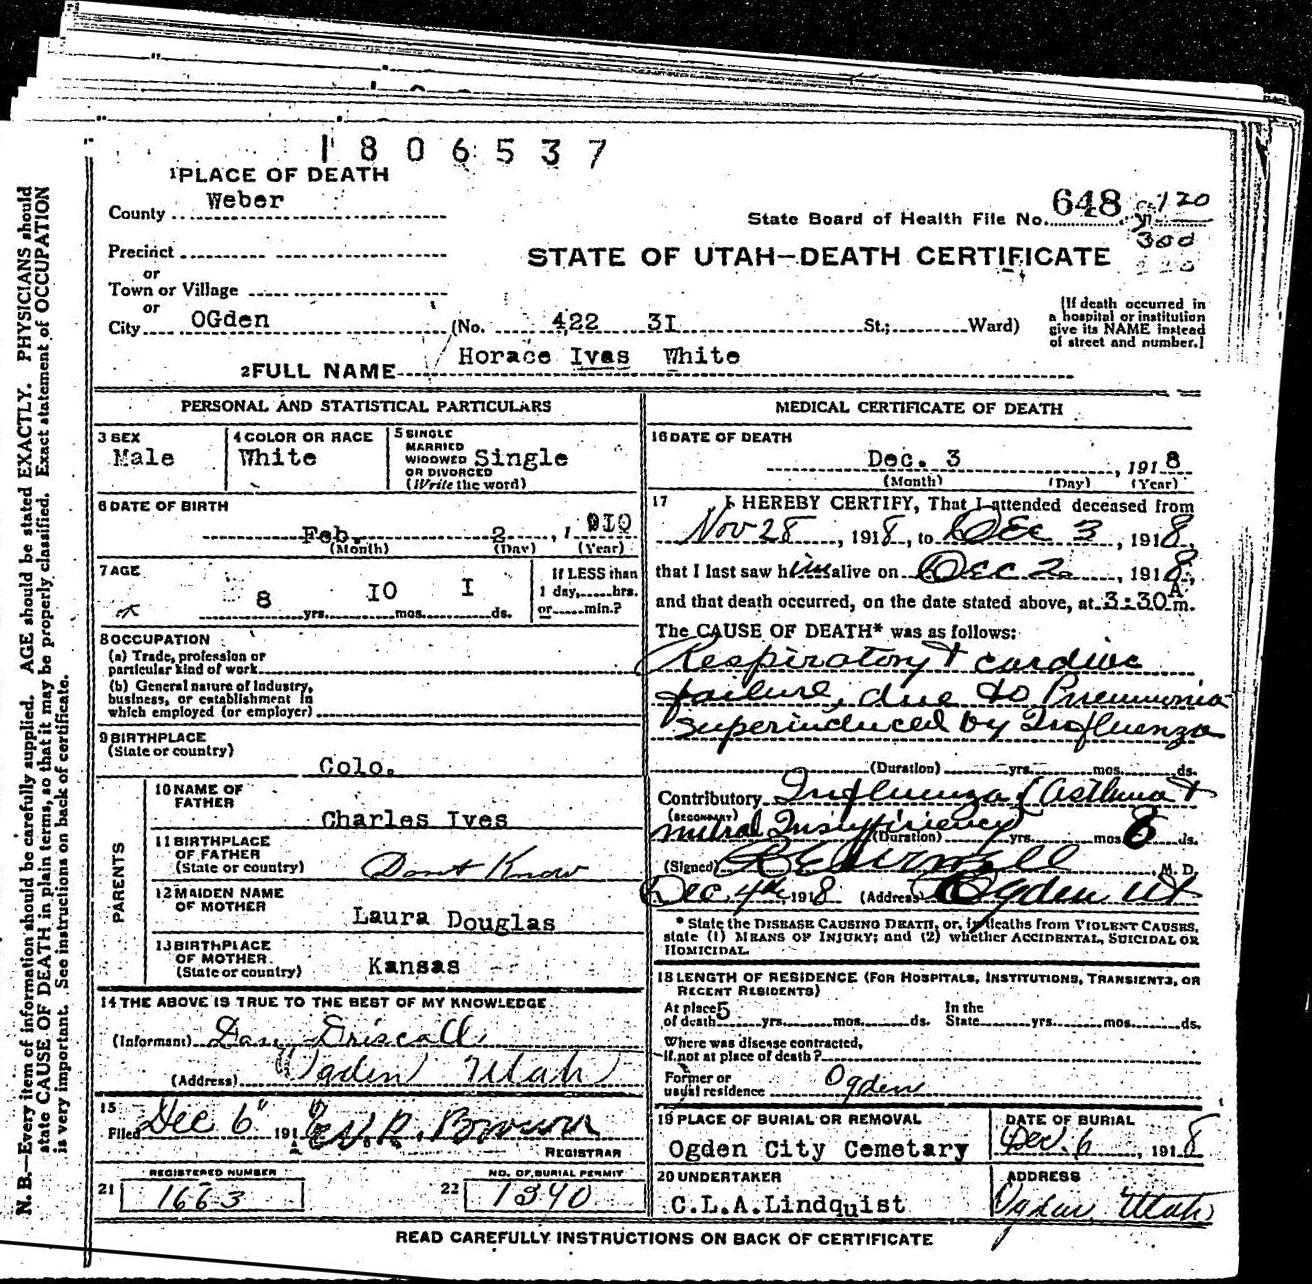 1806537
1 PLACE OF DEATH
County Weber
State Board of Health File No. 648 120
300
Precinct
or
Town or Village
or
City OGden (No. 422 3I St.; Ward)
STATE OF UTAH—DEATH CERTIFICATE
[If death occurred in
a hospital or institution
give its NAME instead
of street and number.]
2 FULL NAME Horace Ives White
PERSONAL AND STATISTICAL PARTICULARS
3 SEX
Male
4 COLOR OR RACE
White
5 SINGLE
MARRIED
WIDOWED
OR DIVORCED
(Write the word)
Single
6 DATE OF BIRTH
Feb. 2 , 1 910
(Month) (Day) (Year)
7 AGE
8 yrs. IO mos. I ds.
If LESS than
1 day,......hrs.
or......min.?
8 OCCUPATION
(a) Trade, profession or
particular kind of work
(b) General nature of industry,
business, or establishment in
which employed (or employer)
9 BIRTHPLACE
(State or country)
Colo.
PARENTS
10 NAME OF
FATHER
Charles Ives
11 BIRTHPLACE
OF FATHER
(State or country) Dont Know
12 MAIDEN NAME
OF MOTHER
Laura Douglas
13 BIRTHPLACE
OF MOTHER
(State or country) Kansas
14 THE ABOVE IS TRUE TO THE BEST OF MY KNOWLEDGE
(Informant) Dan Driscall
(Address) Ogden Utah
15
Filed Dec 6" 191 Brown
REGISTRAR
REGISTERED NUMBER
21 1663
NO. OF BURIAL PERMIT
22 1340
MEDICAL CERTIFICATE OF DEATH
16 DATE OF DEATH
Dec. 3 , 191 8
(Month) (Day) (Year)
17 I HEREBY CERTIFY, That I attended deceased from
Nov 28 , 191 8, to Dec 3 , 191 8,
that I last saw him alive on Dec 2 , 191 8,
and that death occurred, on the date stated above, at 3:30 A m.
The CAUSE OF DEATH* was as follows:
Respiratory & cardiac
failure, due to Pneumonia
superinduced by Influenza
(Duration) yrs. mos. ds.
Contributory Influenza (Asthma &
(SECONDARY)
mitral Insufficiency) (Duration) yrs. mos. 8 ds.
(Signed) M. D.
Dec 4th 191 8 (Address) Ogden Ut
* State the DISEASE CAUSING DEATH, or, in deaths from VIOLENT CAUSES,
state (1) MEANS OF INJURY; and (2) whether ACCIDENTAL, SUICIDAL OR
HOMICIDAL.
18 LENGTH OF RESIDENCE (FOR HOSPITALS, INSTITUTIONS, TRANSIENTS, OR
RECENT RESIDENTS)
At place of death 5 yrs. mos. ds. In the State yrs. mos. ds.
Where was disease contracted,
if not at place of death?
Former or
usual residence Ogden
19 PLACE OF BURIAL OR REMOVAL
Ogden City Cemetary
DATE OF BURIAL
Dec. 6 , 191 8
20 UNDERTAKER
C.L.A.Lindquist
ADDRESS
Ogden, Utah
READ CAREFULLY INSTRUCTIONS ON BACK OF CERTIFICATE
N. B.—Every item of information should be carefully supplied. AGE should be stated EXACTLY. PHYSICIANS should
state CAUSE OF DEATH in plain terms, so that it may be properly classified. Exact statement of OCCUPATION
is very important. See instructions on back of certificate.